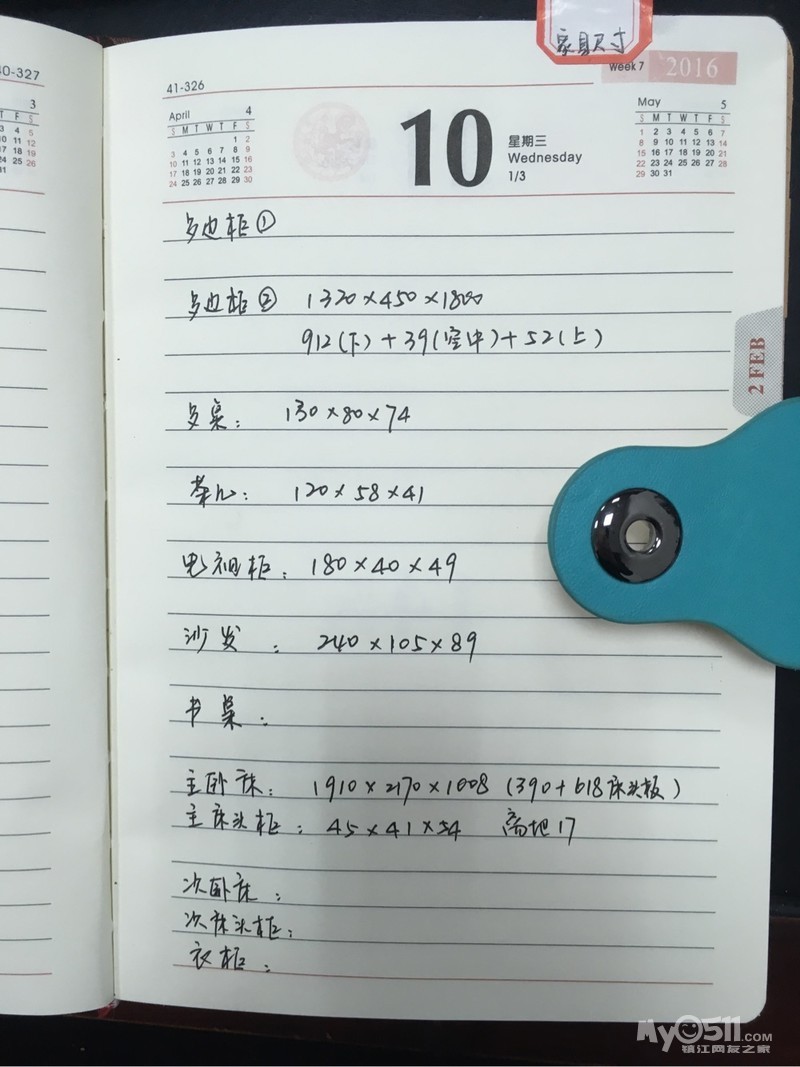 家具尺寸
40-327
41-326
week 7
2016
3
April 4
S M T W T F S
1 2
3 4 5 6 7 8 9
10 11 12 13 14 15 16
17 18 19 20 21 22 23
24 25 26 27 28 29 30
10
星期三
Wednesday
1/3
May 5
S M T W T F S
1 2 3 4 5 6 7
8 9 10 11 12 13 14
15 16 17 18 19 20 21
22 23 24 25 26 27 28
29 30 31
多边柜①
多边柜② 1320×450×1800
912(下)+39(空中)+52(上)
2 FEB
多桌: 130×80×74
茶几: 120×58×41
电视柜: 180×40×49
沙发: 240×105×89
书桌:
主卧床: 1910×2170×1008 (390+618床头板)
主床头柜: 45×41×54 离地17
次卧床:
次床头柜:
衣柜:
My0511.COM
镇江网友之家